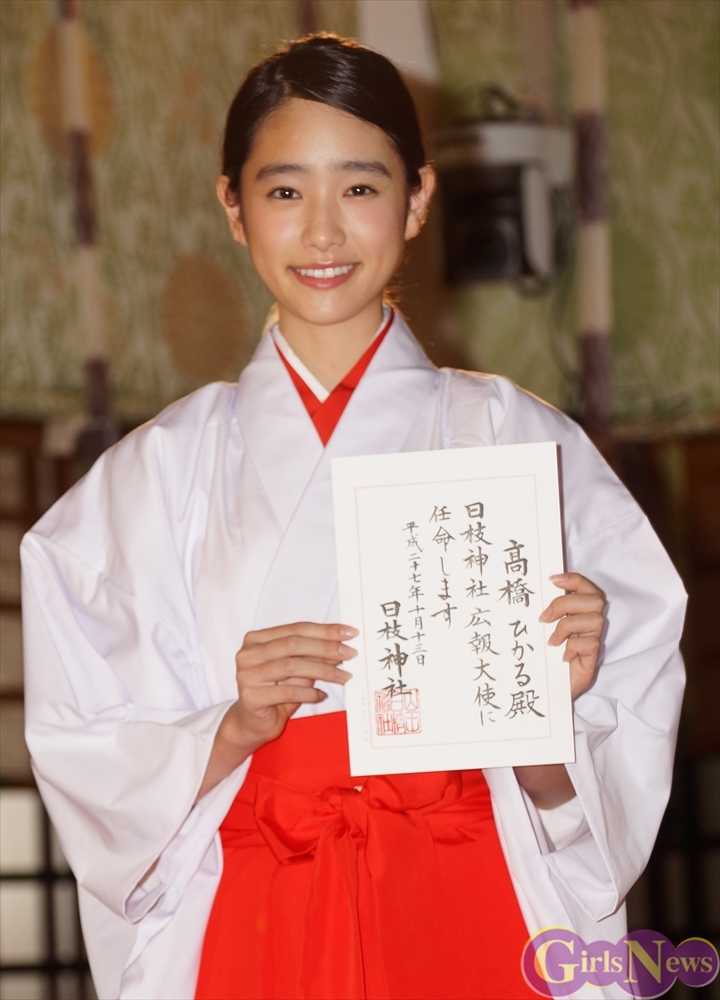 髙橋ひかる殿
日枝神社広報大使に
任命します
平成二十七年十月十三日
日枝神社
GirlsNews